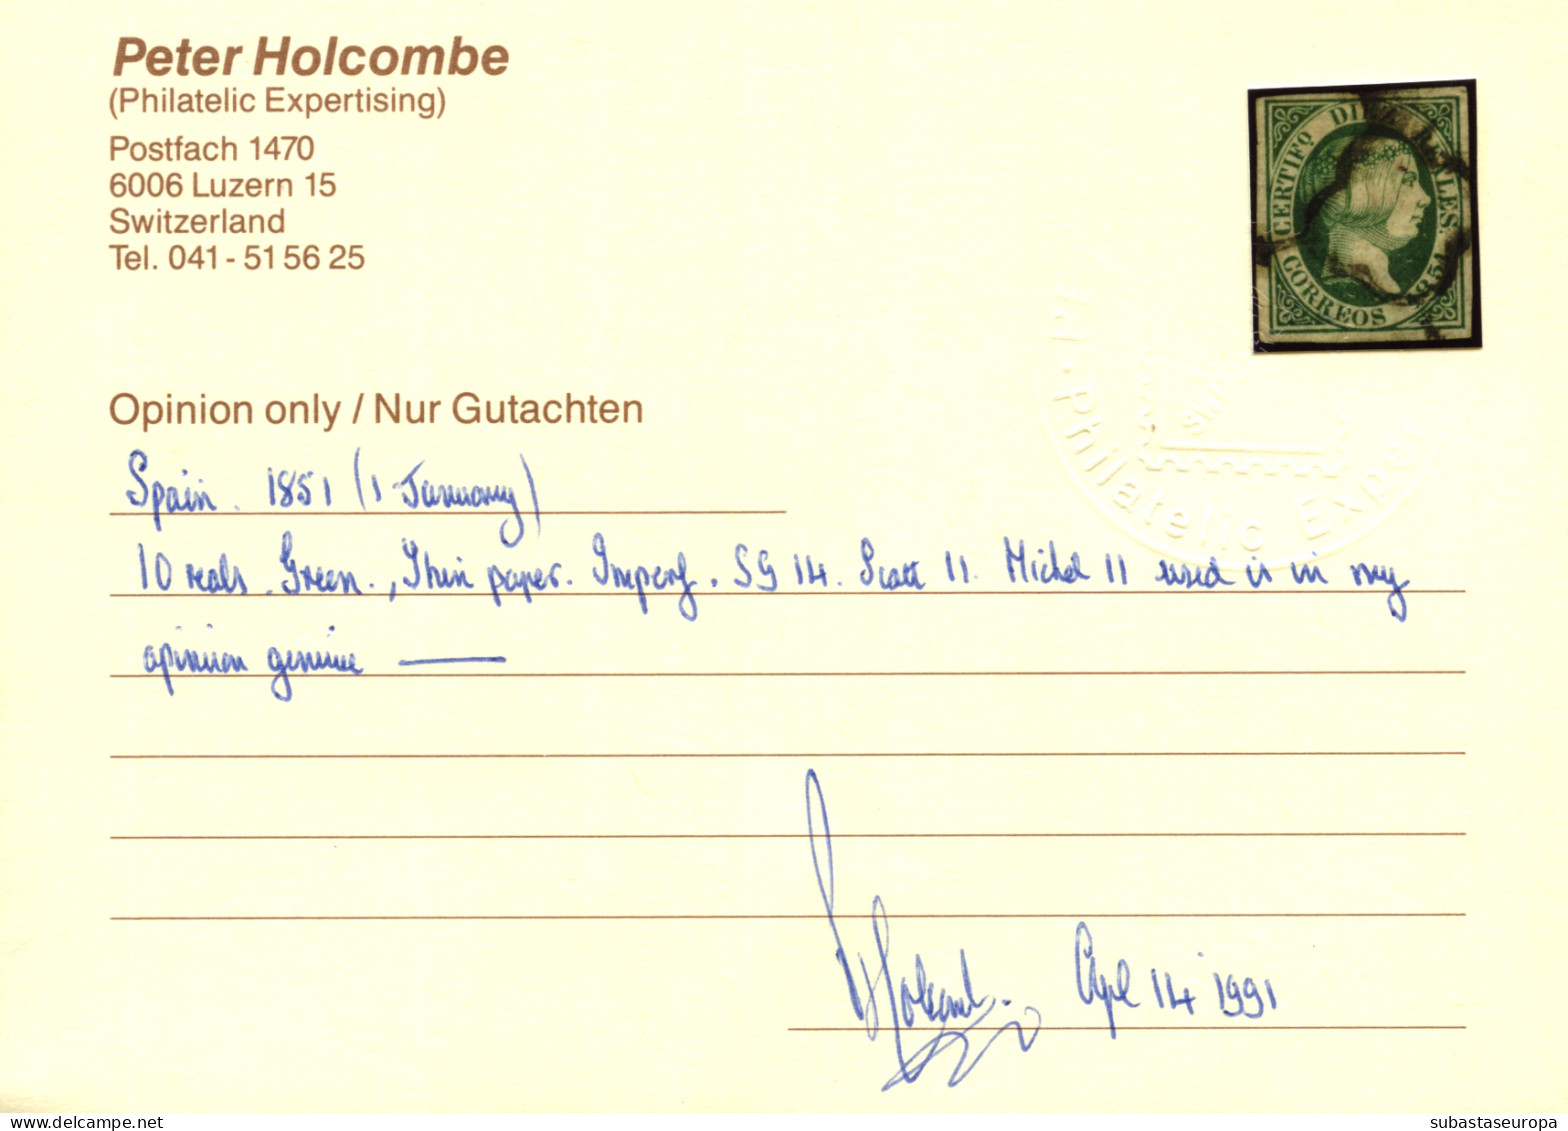 Peter Holcombe
(Philatelic Expertising)
Postfach 1470
6006 Luzern 15
Switzerland
Tel. 041 - 51 56 25
CERTIFº DIEZ REALES.
CORREOS 1851
Opinion only / Nur Gutachten
Spain. 1851 (1 January)
10 reals. Green., Thin paper. Imperf. SG 14. Scott 11. Michel 11 used is in my
opinion genuine
Philatelic Exper
P Holcombe. April 14 1991
delcampe.net
subastaseuropa